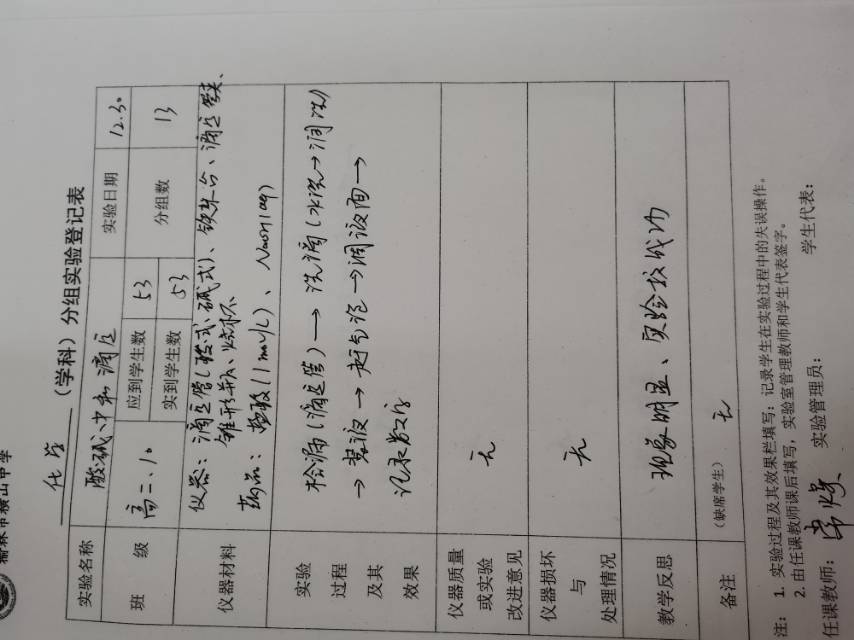 榆林市横山中学
化学 (学科) 分组实验登记表
实验名称 酸碱中和滴定 实验日期 12.30
班 级 高二.10 应到学生数 53 分组数 13
实到学生数 53
仪器材料 仪器：滴定管(酸式、碱式)、铁架台、滴定管夹、
锥形瓶、烧杯
药品：盐酸(1mol/L)、NaOH(aq)
实验 过程 及其 效果
检漏(滴定管) → 洗滴(水洗→润洗)
→ 装液 → 赶气泡 → 调液面 →
记录数字
仪器质量 或实验 改进意见 无
仪器损坏 与 处理情况 无
教学反思 现象明显、实验较成功
备注 (缺席学生) 无
注： 1. 实验过程及其效果栏填写：记录学生在实验过程中的失误操作。
2. 由任课教师课后填写，实验室管理教师和学生代表签字。
任课教师： 实验管理员： 学生代表：